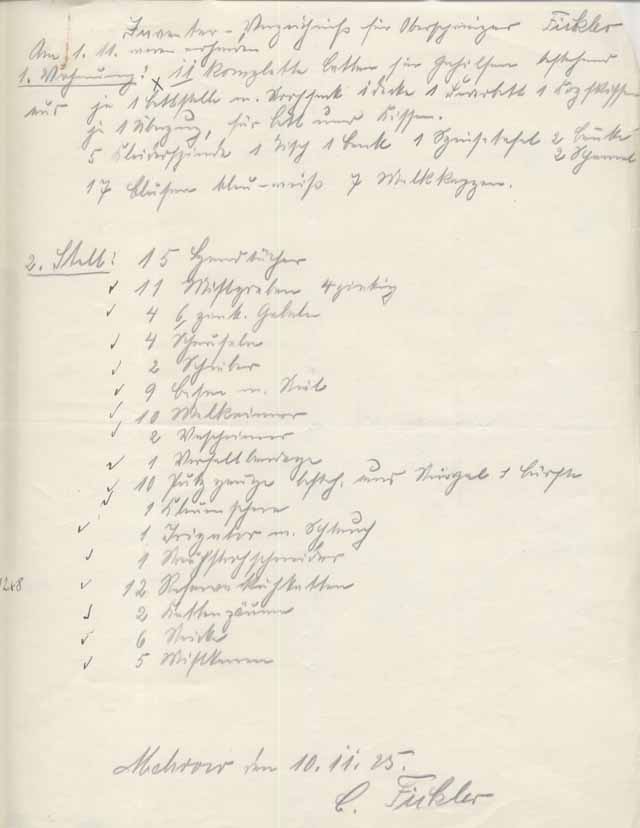 Inventar-Verzeichniß für Oberschweizer Fickler
Am 1. 11. waren vorhanden
1. Wohnung: 11 komplette Betten für Gehilfen bestehend
aus je 1 Bettstelle m. Strohsack 1 Decke 1 Kopfkissen
je 1 Überzug, für Bett und Kissen.
5 Kleiderspinde 1 Tisch 1 Bank 1 Speisetafel 2 Bänke
2 Schemel
17 Blusen blau-weiß 7 Melkkappen.
2. Stall: 15 Handtücher
11 Mistgabeln 4 zinkig
4 6 zink. Gabeln
4 Schaufeln
2 Schieber
9 Besen m. Stiel
10 Melkeimer
2 Wascheimer
1
10 Putzzeuge besteh. aus Striegel & Bürste
1 Klauenschere
1 Irigator m. Schlauch
1
12 Kuhketten
2 Kettenzäume
6 Stricke
5 Mistkarren
12x8
Mehrow den 10. 11. 25.
C. Fickler